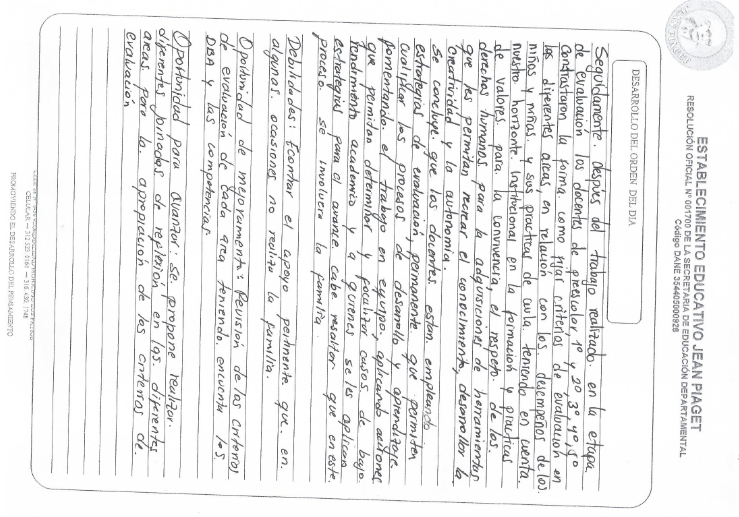 ESTABLECIMIENTO EDUCATIVO JEAN PIAGET
RESOLUCIÓN OFICIAL Nº 001700 DE LA SECRETARIA DE EDUCACIÓN DEPARTAMENTAL
Código DANE 354405000928
DESARROLLO DEL ORDEN DEL DIA
Seguidamente. después del trabajo realizado en la etapa
de evaluación los docentes de preescolar, 1º y 2º, 3º 4º, 5º
Contrastaron la forma como fijar criterios de evaluación en
las diferentes areas, en relación con los desempeños de los
niños y niñas y sus practicas de aula teniendo en cuenta
nuestro horizonte Institucional en la formación y practicas
de valores para la convivencia, el respeto de los
derechos humanos para la adquisiciones de herramientas
que les permitan recrear el conocimiento, desarrollar la
creatividad y la autonomia.
Se concluye que los docentes estan empleando
estrategias de evaluación, permanente que permiten
cualificar los procesos de desarrollo y aprendizaje
fomentando el trabajo en equipo, aplicando acciones
que permitan determinar y focalizar casos de bajo
rendimiento academico y a quienes se les aplican
estrategias para el avance, cabe resaltar que en este
proceso se involucra la familia.
Debilidades: Econtrar el apoyo pertinente que en
algunas ocasiones no realiza la familia.
Oportunidad de mejoramento: Revisión de los criterios
de evaluación de cada area teniendo encuenta los
DBA y las competencias.
Oportunidad para avanzar: Se propone realizar
diferentes jornadas de reflexión en las diferentes
areas para la apropiación de los criterios de
evaluación
PROMOVIENDO EL DESARROLLO DEL PENSAMIENTO